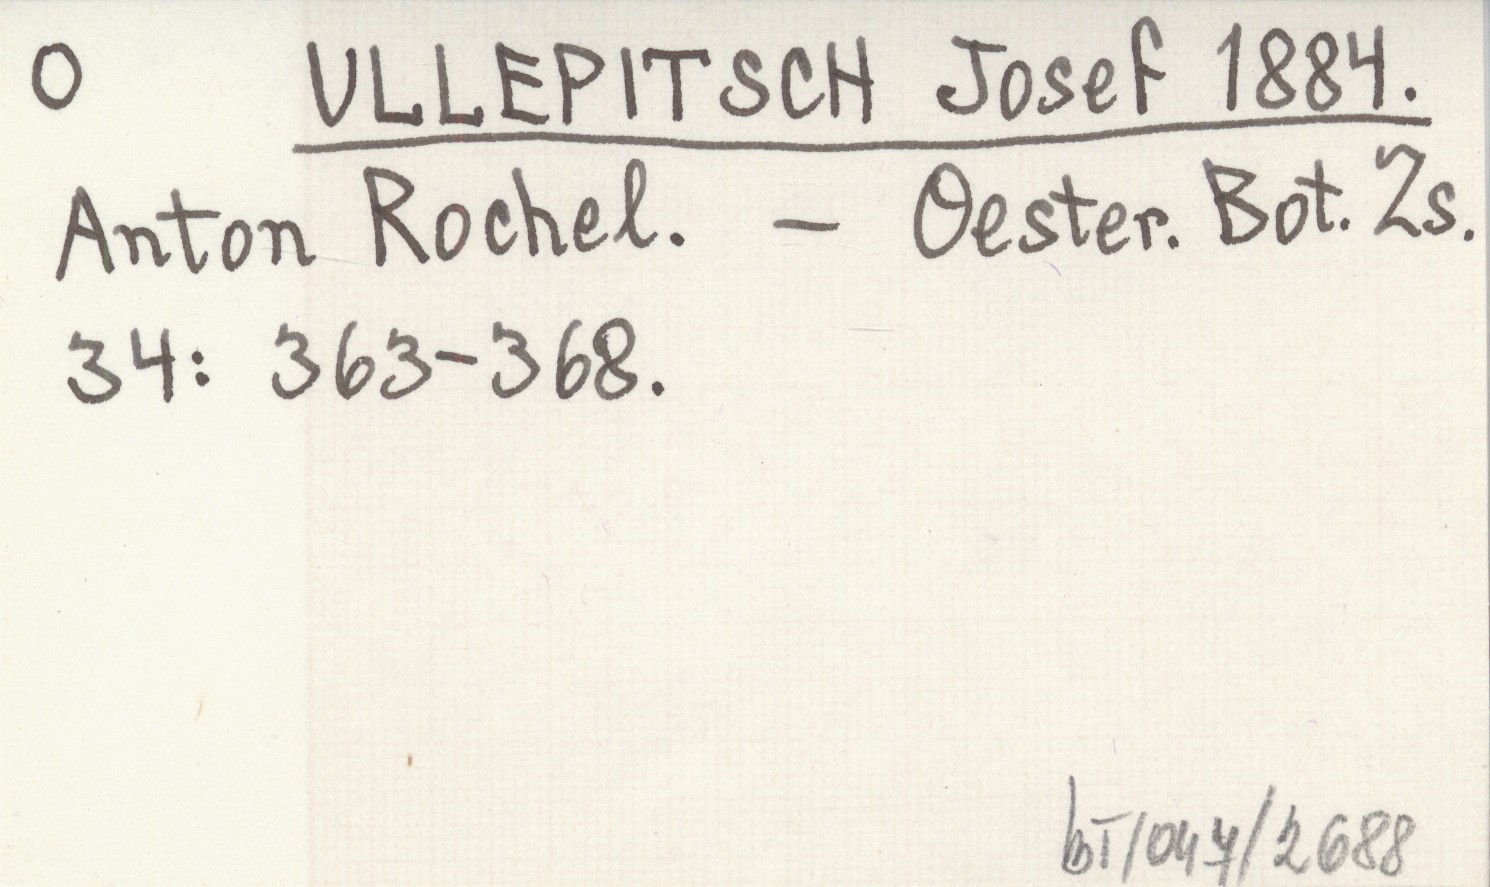 O ULLEPITSCH Josef 1884.
Anton Rochel. – Oester. Bot. Zs.
34: 363-368.
bT/047/2688